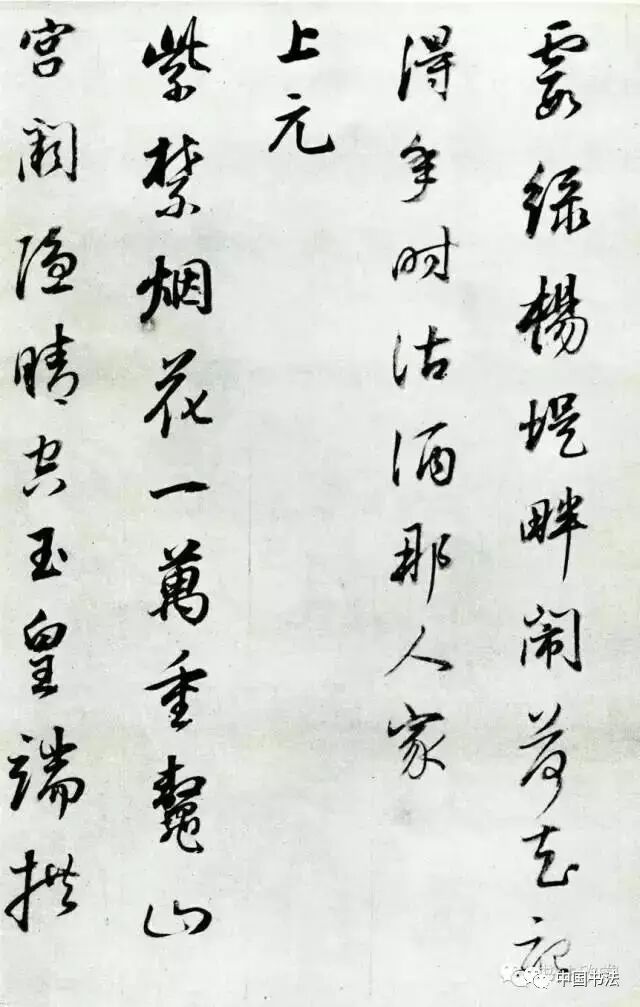 霞绿楊堤畔闹荷花記
得年时沽酒那人家
上元
紫禁烟花一萬重鼇山
宫阙隐晴空玉皇端拱
中国书法